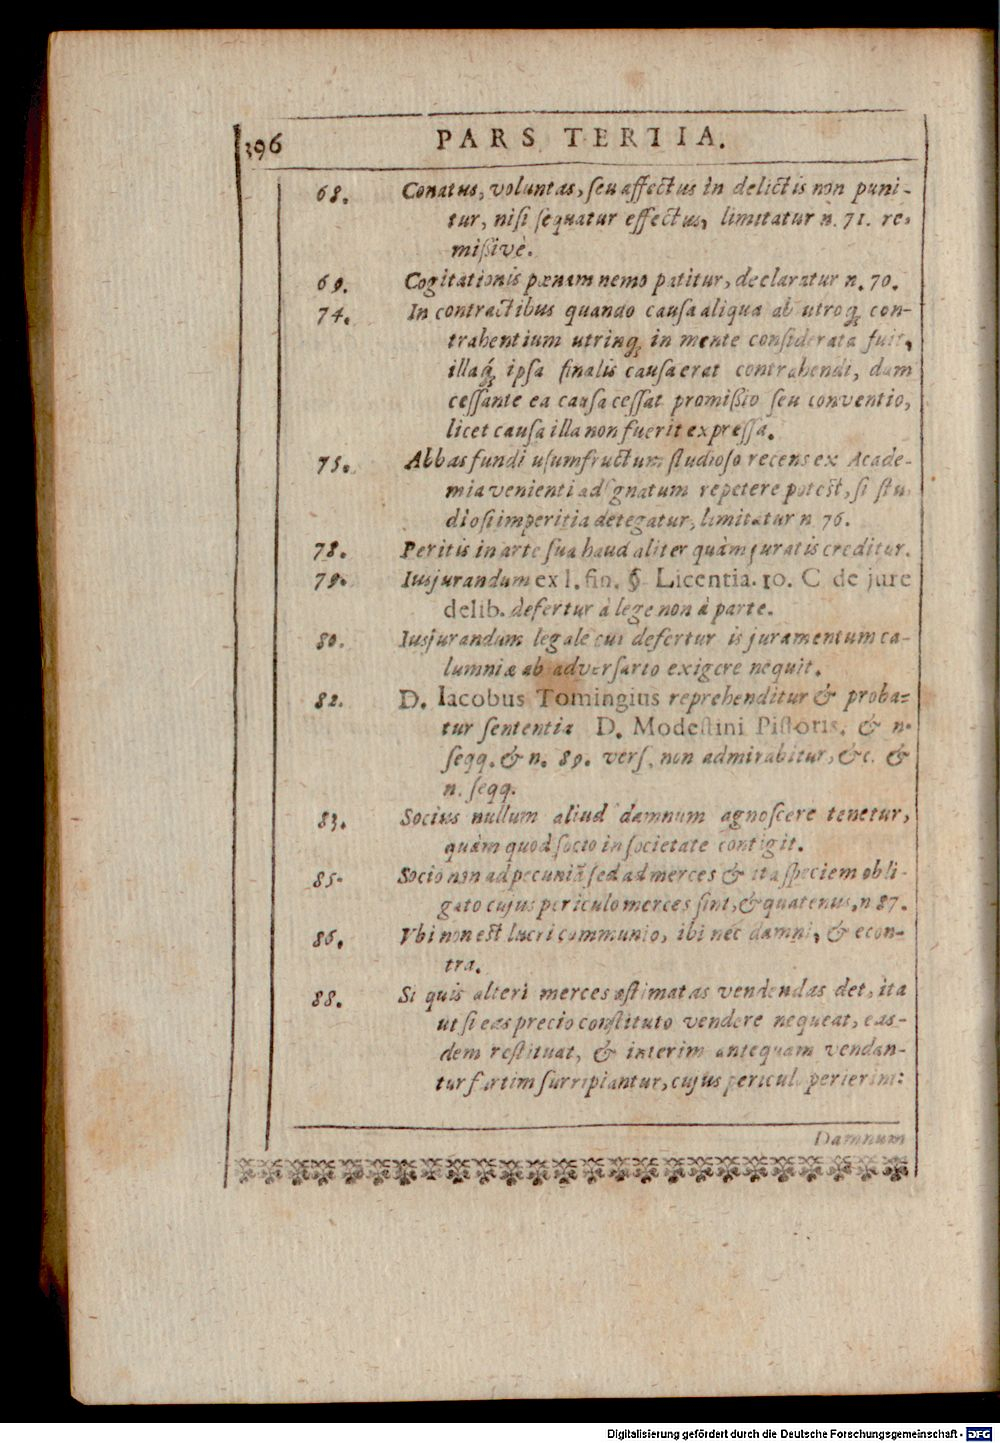 396
PARS TERTIA.
68. Conatus, voluntas, ſeu affectus in delictis non puni-
tur, niſi ſequatur effectus, limitatur n. 71. re-
miſſivè.
69. Cogitationis pœnam nemo patitur, declaratur n. 70.
74. In contractibus quando cauſa aliqua ab utroq; con-
trahentium utrinq; in mente conſiderata fuit,
illaq́; ipſa finalis cauſa erat contrahendi, dum
ceſſante ea cauſa ceſſat promiſſio ſeu conventio,
licet cauſa illa non fuerit expreſſa.
75. Abbas fundi uſumfructum ſtudioſo recens ex Acade-
mia venienti adſignatum repetere poteſt, ſi ſtu-
dioſi imperitia detegatur, limitatur n 76.
78. Peritis in arte ſua haud aliter quàm juratis creditur.
79. Iusjurandum ex l. fin. §. Licentia. 10. C de jure
delib. defertur à lege non à parte.
80. Iusjurandum legale cui defertur is juramentum ca-
lumniæ ab adverſario exigere nequit.
82. D. Iacobus Tomingius reprehenditur & proba-
tur ſententia D. Modeſtini Piſtoris. & n.
ſeqq. & n. 89. verſ. non admirabitur, &c. &
n. ſeqq.
83. Socius nullum aliud damnum agnoſcere tenetur,
quàm quod ſocio in ſocietate contigit.
85. Socio non ad pecuniã ſed ad merces & ita ſpeciem obli-
gato cujus periculo merces ſint, & quatenus, n 87.
86. Vbi non eſt lucri communio, ibi nec damni, & econ-
tra.
88. Si quis alteri merces æſtimatas vendendas det, ita
ut ſi eas precio conſtituto vendere nequeat, eas-
dem reſtituat, & interim antequam vendan-
tur furtim ſurripiantur, cujus periculo perierint:
Damnum
Digitalisierung gefördert durch die Deutsche Forschungsgemeinschaft - DFG